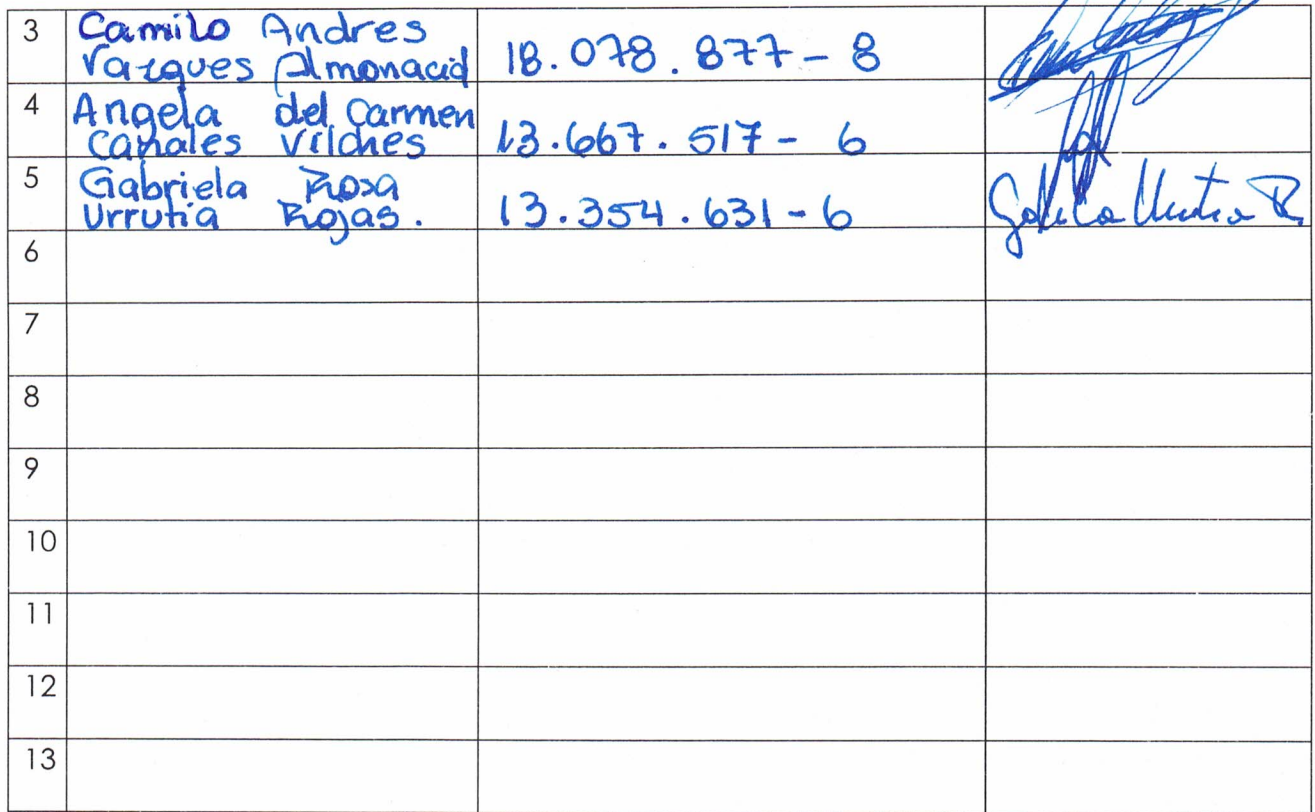 3 Camilo Andres
Vazques Almonacid 18.078.877-8
4 Angela del Carmen
Canales Vilches 13.667.517-6
5 Gabriela Rosa
Urrutia Rojas. 13.354.631-6
6
7
8
9
10
11
12
13